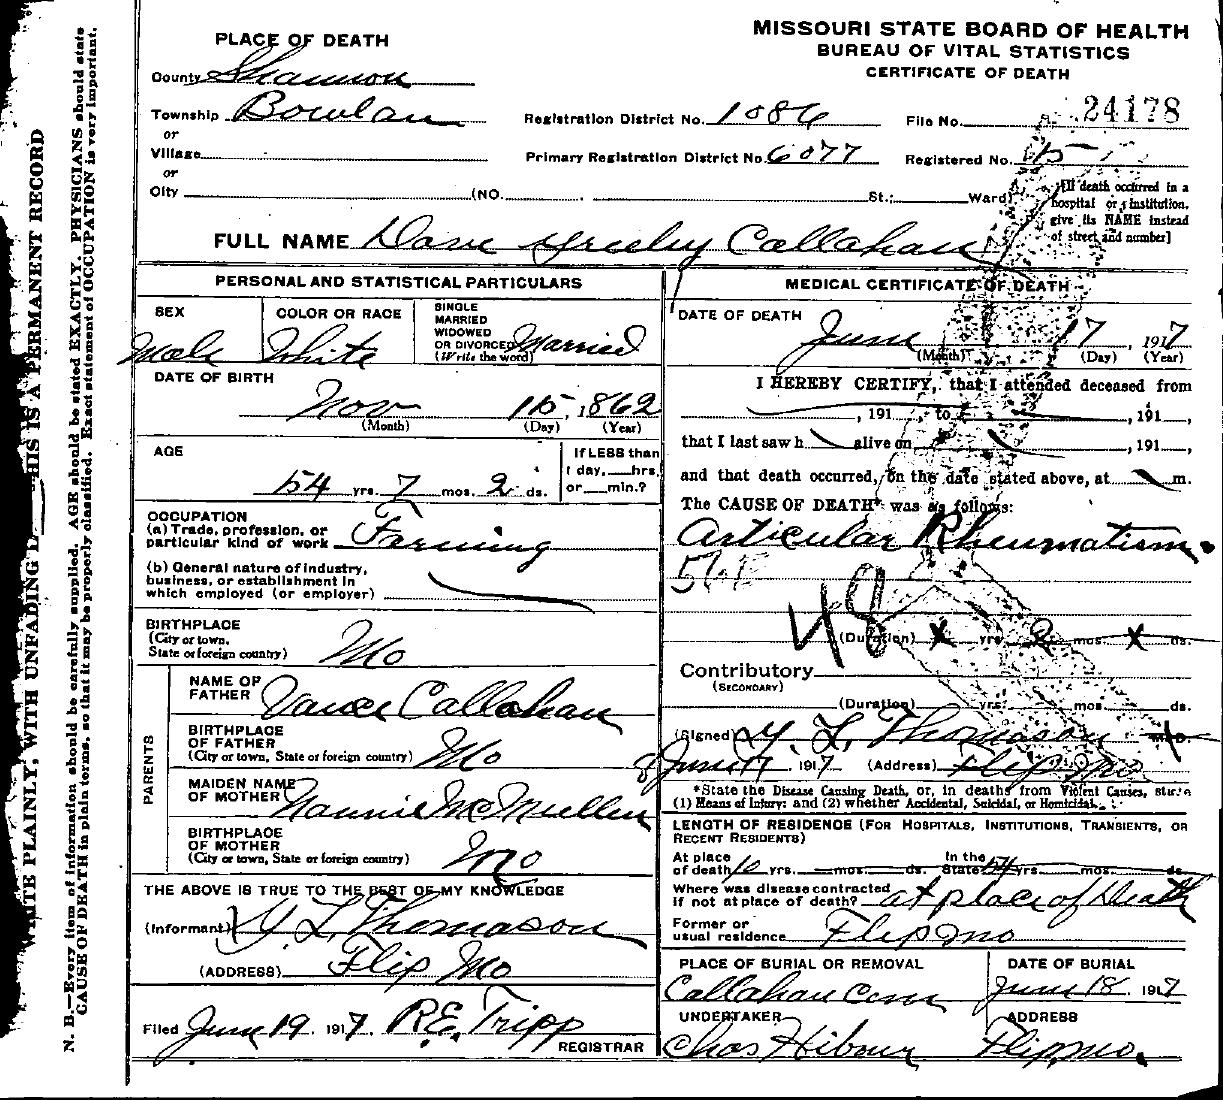 MISSOURI STATE BOARD OF HEALTH
BUREAU OF VITAL STATISTICS
CERTIFICATE OF DEATH
PLACE OF DEATH
County Shannon
Township Bowlan
or
Village
or
City (NO. St.; Ward)
Registration District No. 1086
File No. 24178
Primary Registration District No. 6077
Registered No. 15
[If death occurred in a
hospital or institution,
give its NAME instead
of street and number]
FULL NAME Dave Greeley Callahan
PERSONAL AND STATISTICAL PARTICULARS
SEX Male
COLOR OR RACE White
SINGLE
MARRIED
WIDOWED
OR DIVORCED Married
(Write the word)
DATE OF BIRTH
Nov 15, 1862
(Month) (Day) (Year)
AGE
54 yrs. 7 mos. 2 ds.
If LESS than
1 day, hrs.
or min.?
OCCUPATION
(a) Trade, profession, or
particular kind of work Farming
(b) General nature of industry,
business, or establishment in
which employed (or employer)
BIRTHPLACE
(City or town,
State or foreign country) Mo
PARENTS
NAME OF
FATHER Vance Callahan
BIRTHPLACE
OF FATHER
(City or town, State or foreign country) Mo
MAIDEN NAME
OF MOTHER Nannie McMullen
BIRTHPLACE
OF MOTHER
(City or town, State or foreign country) Mo
THE ABOVE IS TRUE TO THE BEST OF MY KNOWLEDGE
(Informant) Y. L. Thomason
(ADDRESS) Flip Mo
Filed June 19, 1917. R.E. Tripp
REGISTRAR
MEDICAL CERTIFICATE OF DEATH
DATE OF DEATH
June 17, 1917
(Month) (Day) (Year)
I HEREBY CERTIFY, that I attended deceased from
, 191 to , 191 ,
that I last saw h alive on , 191 ,
and that death occurred, on the date stated above, at m.
The CAUSE OF DEATH* was as follows:
Articular Rheumatism.
48
(Duration) X yrs. 2 mos. X ds.
Contributory
(SECONDARY)
(Duration) yrs. mos. ds.
(Signed) Y. L. Thomason
June 17 1917 (Address) Flip Mo
*State the Disease Causing Death, or, in deaths from Violent Causes, state
(1) Means of Injury; and (2) whether Accidental, Suicidal, or Homicidal.
LENGTH OF RESIDENCE (FOR HOSPITALS, INSTITUTIONS, TRANSIENTS, OR
RECENT RESIDENTS)
At place
of death 10 yrs. mos. ds.
In the
State 54 yrs. mos. ds.
Where was disease contracted
if not at place of death? at place of Death
Former or
usual residence Flip Mo
PLACE OF BURIAL OR REMOVAL
Callahan Cem
DATE OF BURIAL
June 18, 1917
UNDERTAKER
Chas Hibour
ADDRESS
Flip, Mo.
WRITE PLAINLY, WITH UNFADING THIS IS A PERMANENT RECORD
N. B.—Every item of information should be carefully supplied. AGE should be stated EXACTLY. PHYSICIANS should state
CAUSE OF DEATH in plain terms, so that it may be properly classified. Exact statement of OCCUPATION is very important.